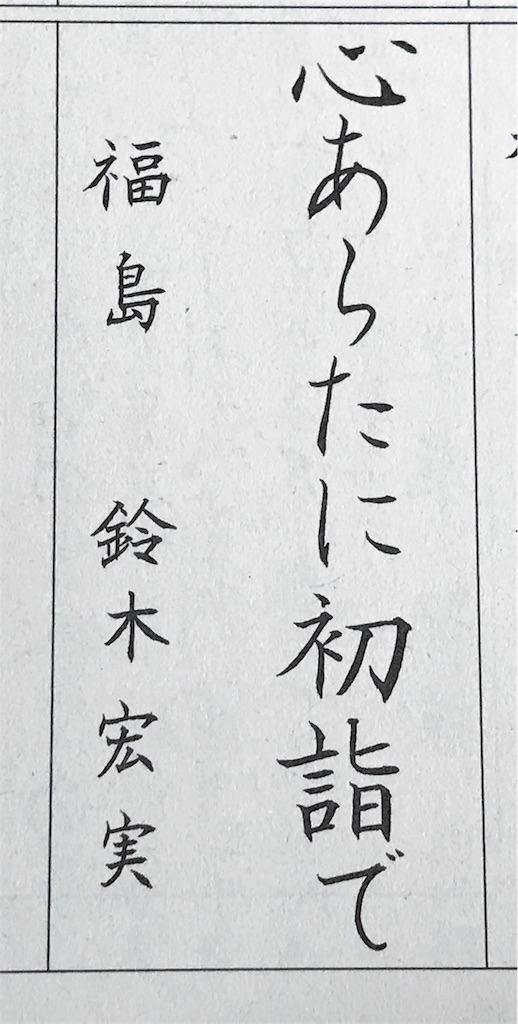 心あらたに初詣で
福島 鈴木宏実